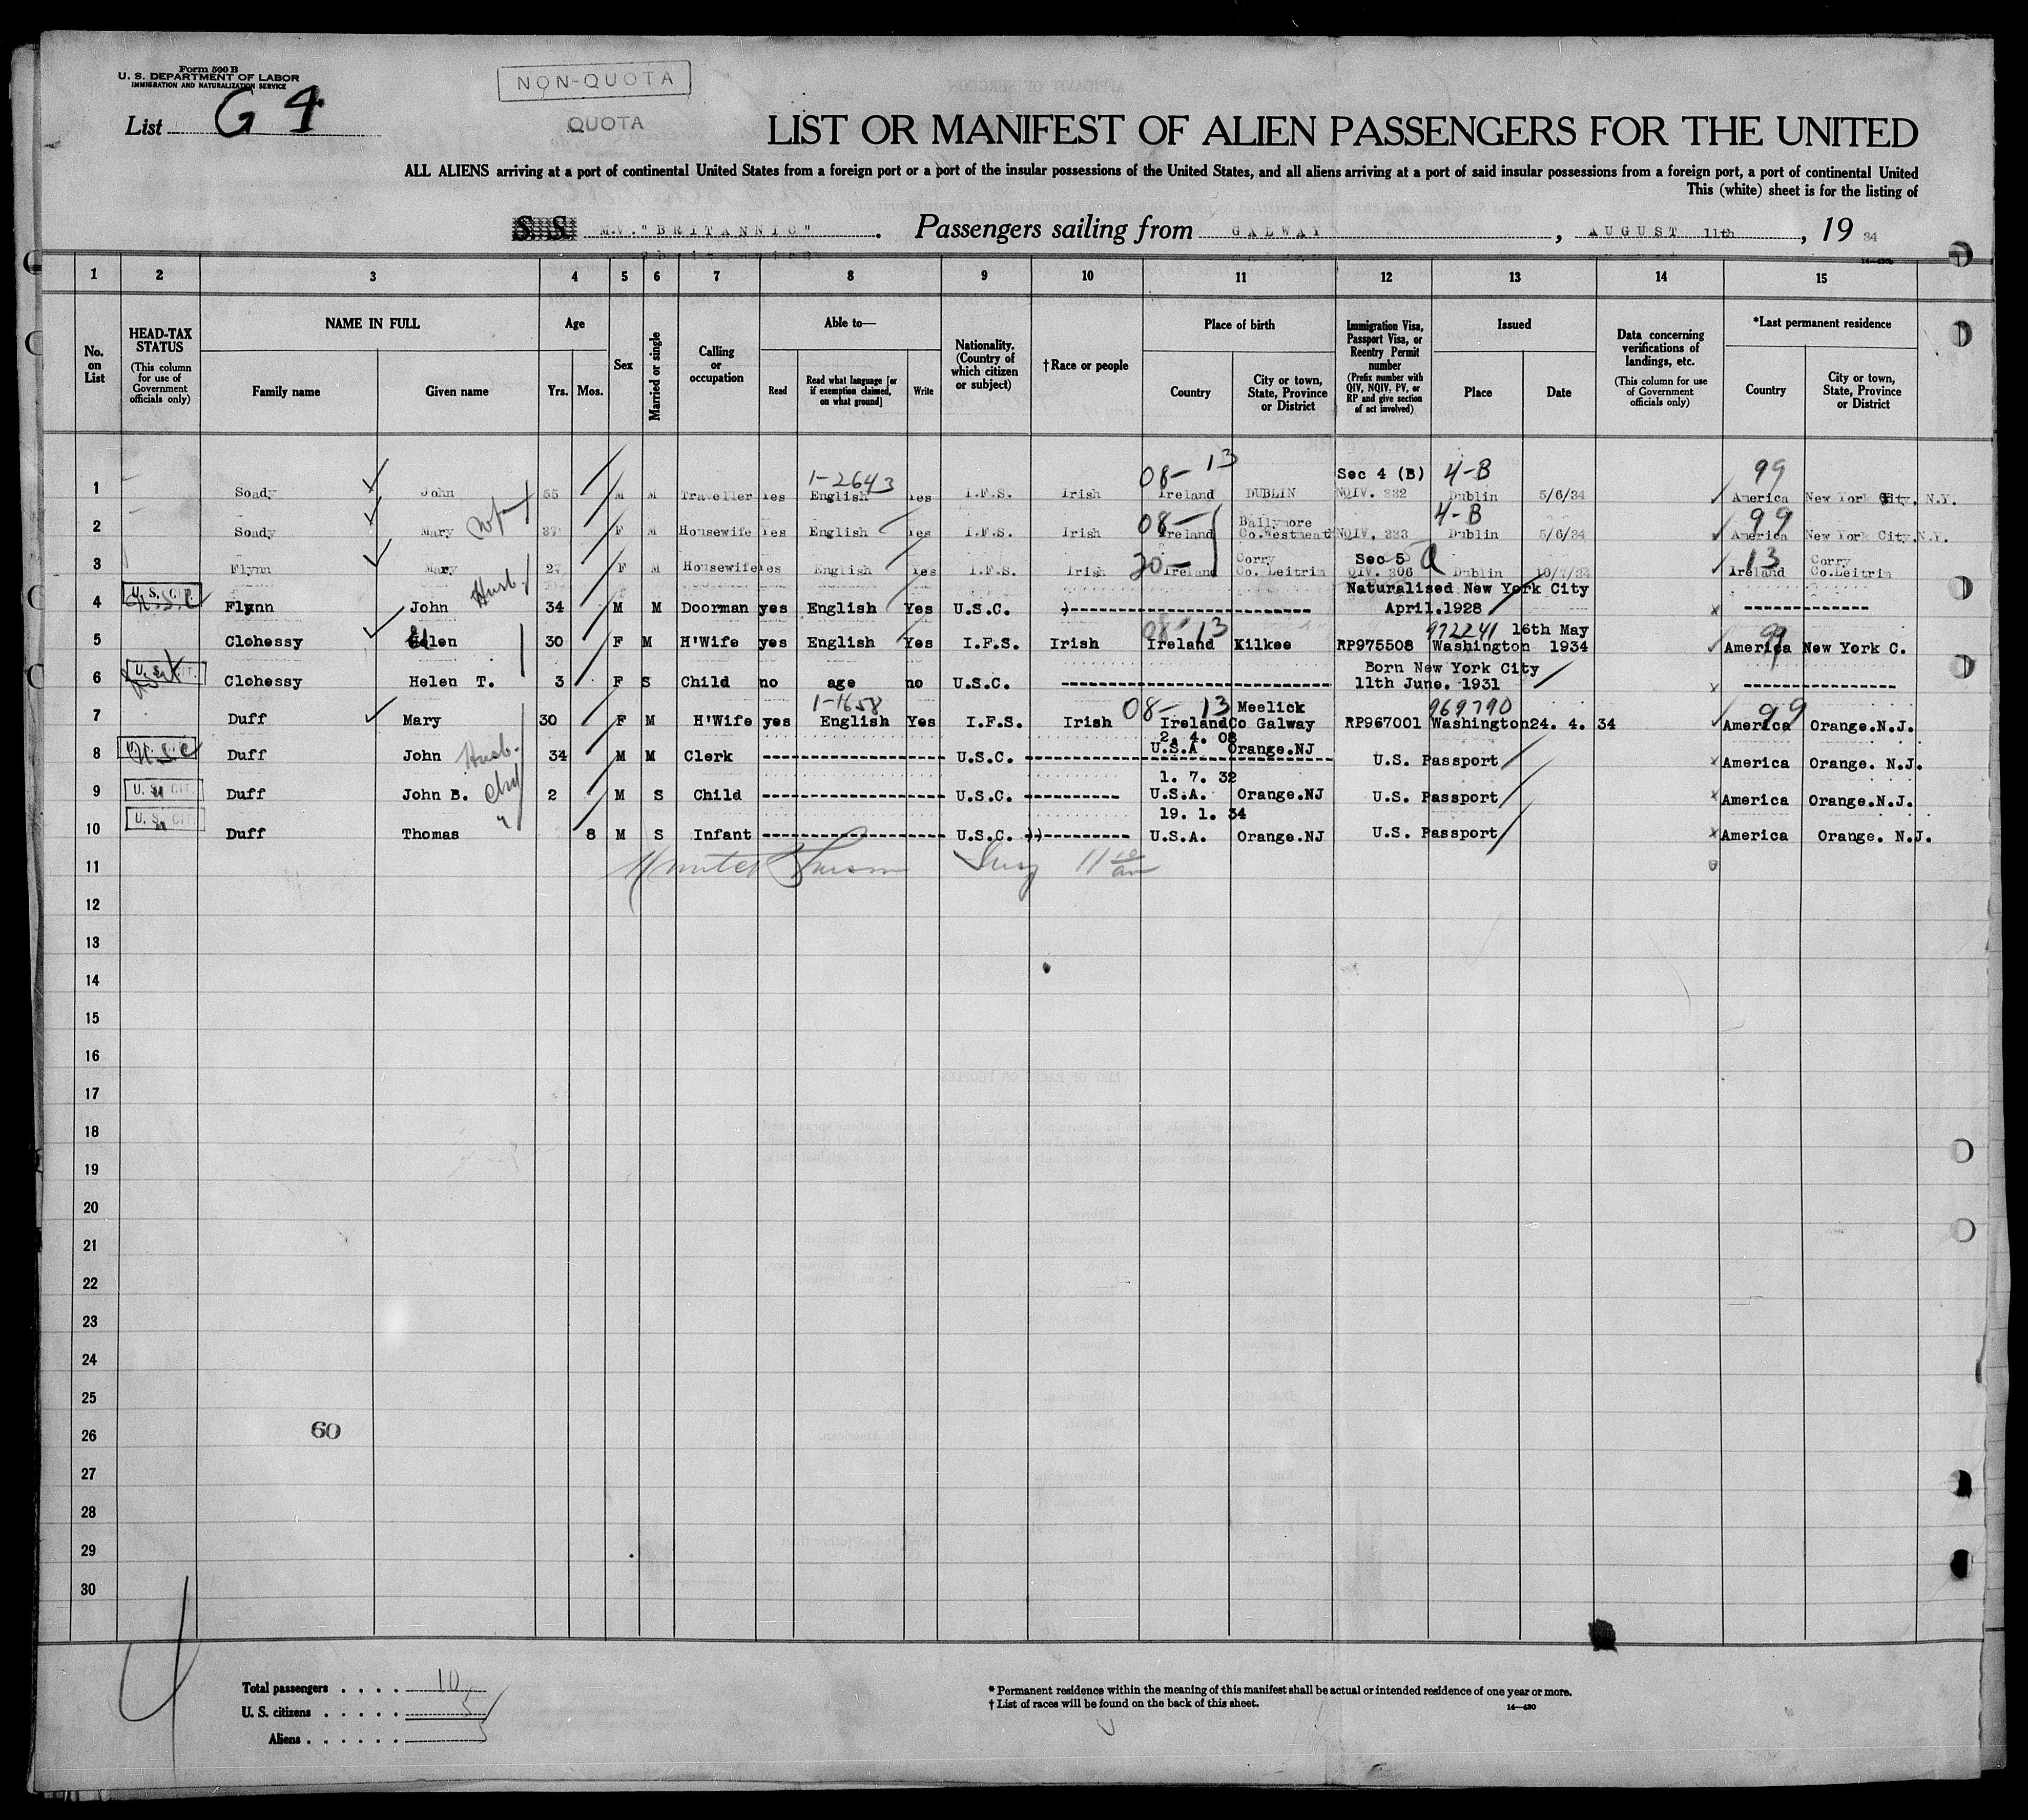 Form 500 B
U. S. DEPARTMENT OF LABOR
IMMIGRATION AND NATURALIZATION SERVICE
NON-QUOTA
QUOTA
List G 4
LIST OR MANIFEST OF ALIEN PASSENGERS FOR THE UNITED
ALL ALIENS arriving at a port of continental United States from a foreign port or a port of the insular possessions of the United States, and all aliens arriving at a port of said insular possessions from a foreign port, a port of continental United
This (white) sheet is for the listing of
S. S. M.V. "BRITANNIC". Passengers sailing from GALWAY, AUGUST 11th, 19 34
1 2 3 4 5 6 7 8 9 10 11 12 13 14 15
No. on List
HEAD-TAX STATUS
(This column for use of Government officials only)
NAME IN FULL
Family name
Given name
Age
Yrs. Mos.
Sex
Married or single
Calling or occupation
Able to—
Read
Read what language [or if exemption claimed, on what ground]
Write
Nationality. (Country of which citizen or subject)
† Race or people
Place of birth
Country
City or town, State, Province or District
Immigration Visa, Passport Visa, or Reentry Permit number
(Prefix number with QIV, NQIV, PV, or RP and give section of act involved)
Issued
Place
Date
Data concerning verifications of landings, etc.
(This column for use of Government officials only)
*Last permanent residence
Country
City or town, State, Province or District
1-2643 08- 13 Sec 4 (B) 4-B 99
1 Soady John 55 M M Traveller Yes English Yes I.F.S. Irish Ireland DUBLIN NQIV. 332 Dublin 5/6/34 America New York City, N.Y.
08- Ballymore 4-B 99
2 Soady Mary 37 F M Housewife Yes English Yes I.F.S. Irish Ireland Co.Westmeath NQIV. 333 Dublin 5/6/34 America New York City, N.Y.
30- Corry Sec 5 a 13 Corry
3 Flynn Mary 27 F M Housewife Yes English Yes I.F.S. Irish Ireland Co. Leitrim QIV. 306 Dublin 10/7/34 Ireland Co.Leitrim
U. S. CIT. Husb. Naturalised New York City
4 Flynn John 34 M M Doorman yes English Yes U.S.C. April.1928
08 13 972241 16th May 99
5 Clohessy Helen 30 F M H'Wife yes English Yes I.F.S. Irish Ireland Kilkee RP975508 Washington 1934 America New York C.
U. S. CIT. Born New York City
6 Clohessy Helen T. 3 F S Child no age no U.S.C. 11th June. 1931
1-1658 08- 13 Meelick 969790 99
7 Duff Mary 30 F M H'Wife yes English Yes I.F.S. Irish Ireland Co Galway RP967001 Washington 24. 4. 34 America Orange.N.J.
U.S.C Husb. 2. 4. 08
8 Duff John 34 M M Clerk U.S.C. U.S.A Orange.NJ U.S. Passport America Orange. N.J.
U. S. CIT. 1. 7. 32
9 Duff John B. 2 M S Child U.S.C. U.S.A. Orange.NJ U.S. Passport America Orange.N.J.
U. S. CIT. 19. 1. 34
10 Duff Thomas 8 M S Infant U.S.C. U.S.A. Orange.NJ U.S. Passport America Orange. N.J.
11
12
13
14
15
16
17
18
19
20
21
22
23
24
25
26 60
27
28
29
30
Total passengers . . . . 10
U. S. citizens . . . . . 5
Aliens . . . . . . 5
* Permanent residence within the meaning of this manifest shall be actual or intended residence of one year or more.
† List of races will be found on the back of this sheet.
14—430